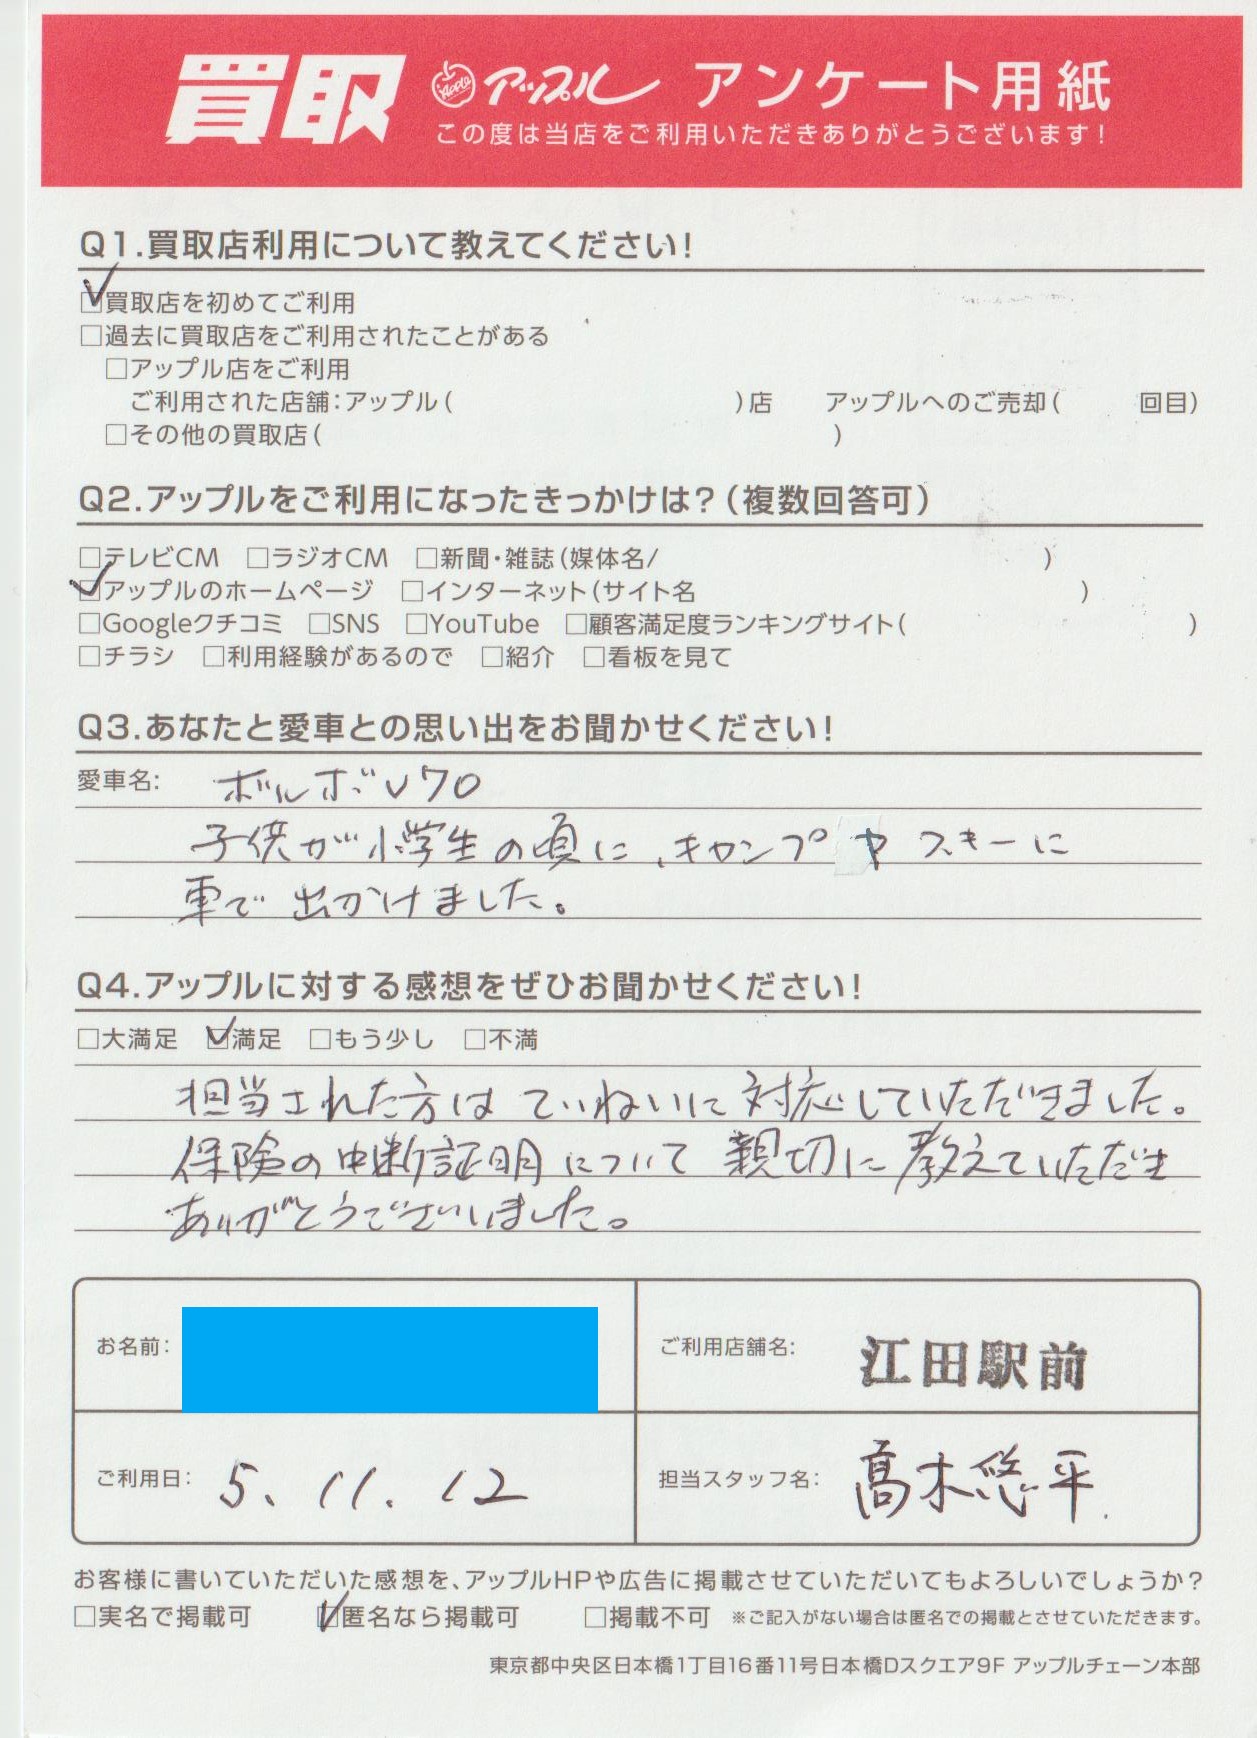 買取 Apple アップル アンケート用紙
この度は当店をご利用いただきありがとうございます!
Q1.買取店利用について教えてください!
☑買取店を初めてご利用
□過去に買取店をご利用されたことがある
□アップル店をご利用
ご利用された店舗:アップル( )店 アップルへのご売却( 回目)
□その他の買取店( )
Q2.アップルをご利用になったきっかけは?(複数回答可)
□テレビCM □ラジオCM □新聞・雑誌(媒体名/ )
☑アップルのホームページ □インターネット(サイト名 )
□Googleクチコミ □SNS □YouTube □顧客満足度ランキングサイト( )
□チラシ □利用経験があるので □紹介 □看板を見て
Q3.あなたと愛車との思い出をお聞かせください!
愛車名: ボルボV70
子供が小学生の頃に、キャンプやスキーに
車で出かけました。
Q4.アップルに対する感想をぜひお聞かせください!
□大満足 ☑満足 □もう少し □不満
担当された方はていねいに対応していただきました。
保険の中断証明について親切に教えていただき
ありがとうございました。
お名前:
ご利用店舗名: 江田駅前
ご利用日: 5. 11. 12
担当スタッフ名: 髙木悠平
お客様に書いていただいた感想を、アップルHPや広告に掲載させていただいてもよろしいでしょうか?
□実名で掲載可 ☑匿名なら掲載可 □掲載不可 ※ご記入がない場合は匿名での掲載とさせていただきます。
東京都中央区日本橋1丁目16番11号日本橋Dスクエア9F アップルチェーン本部